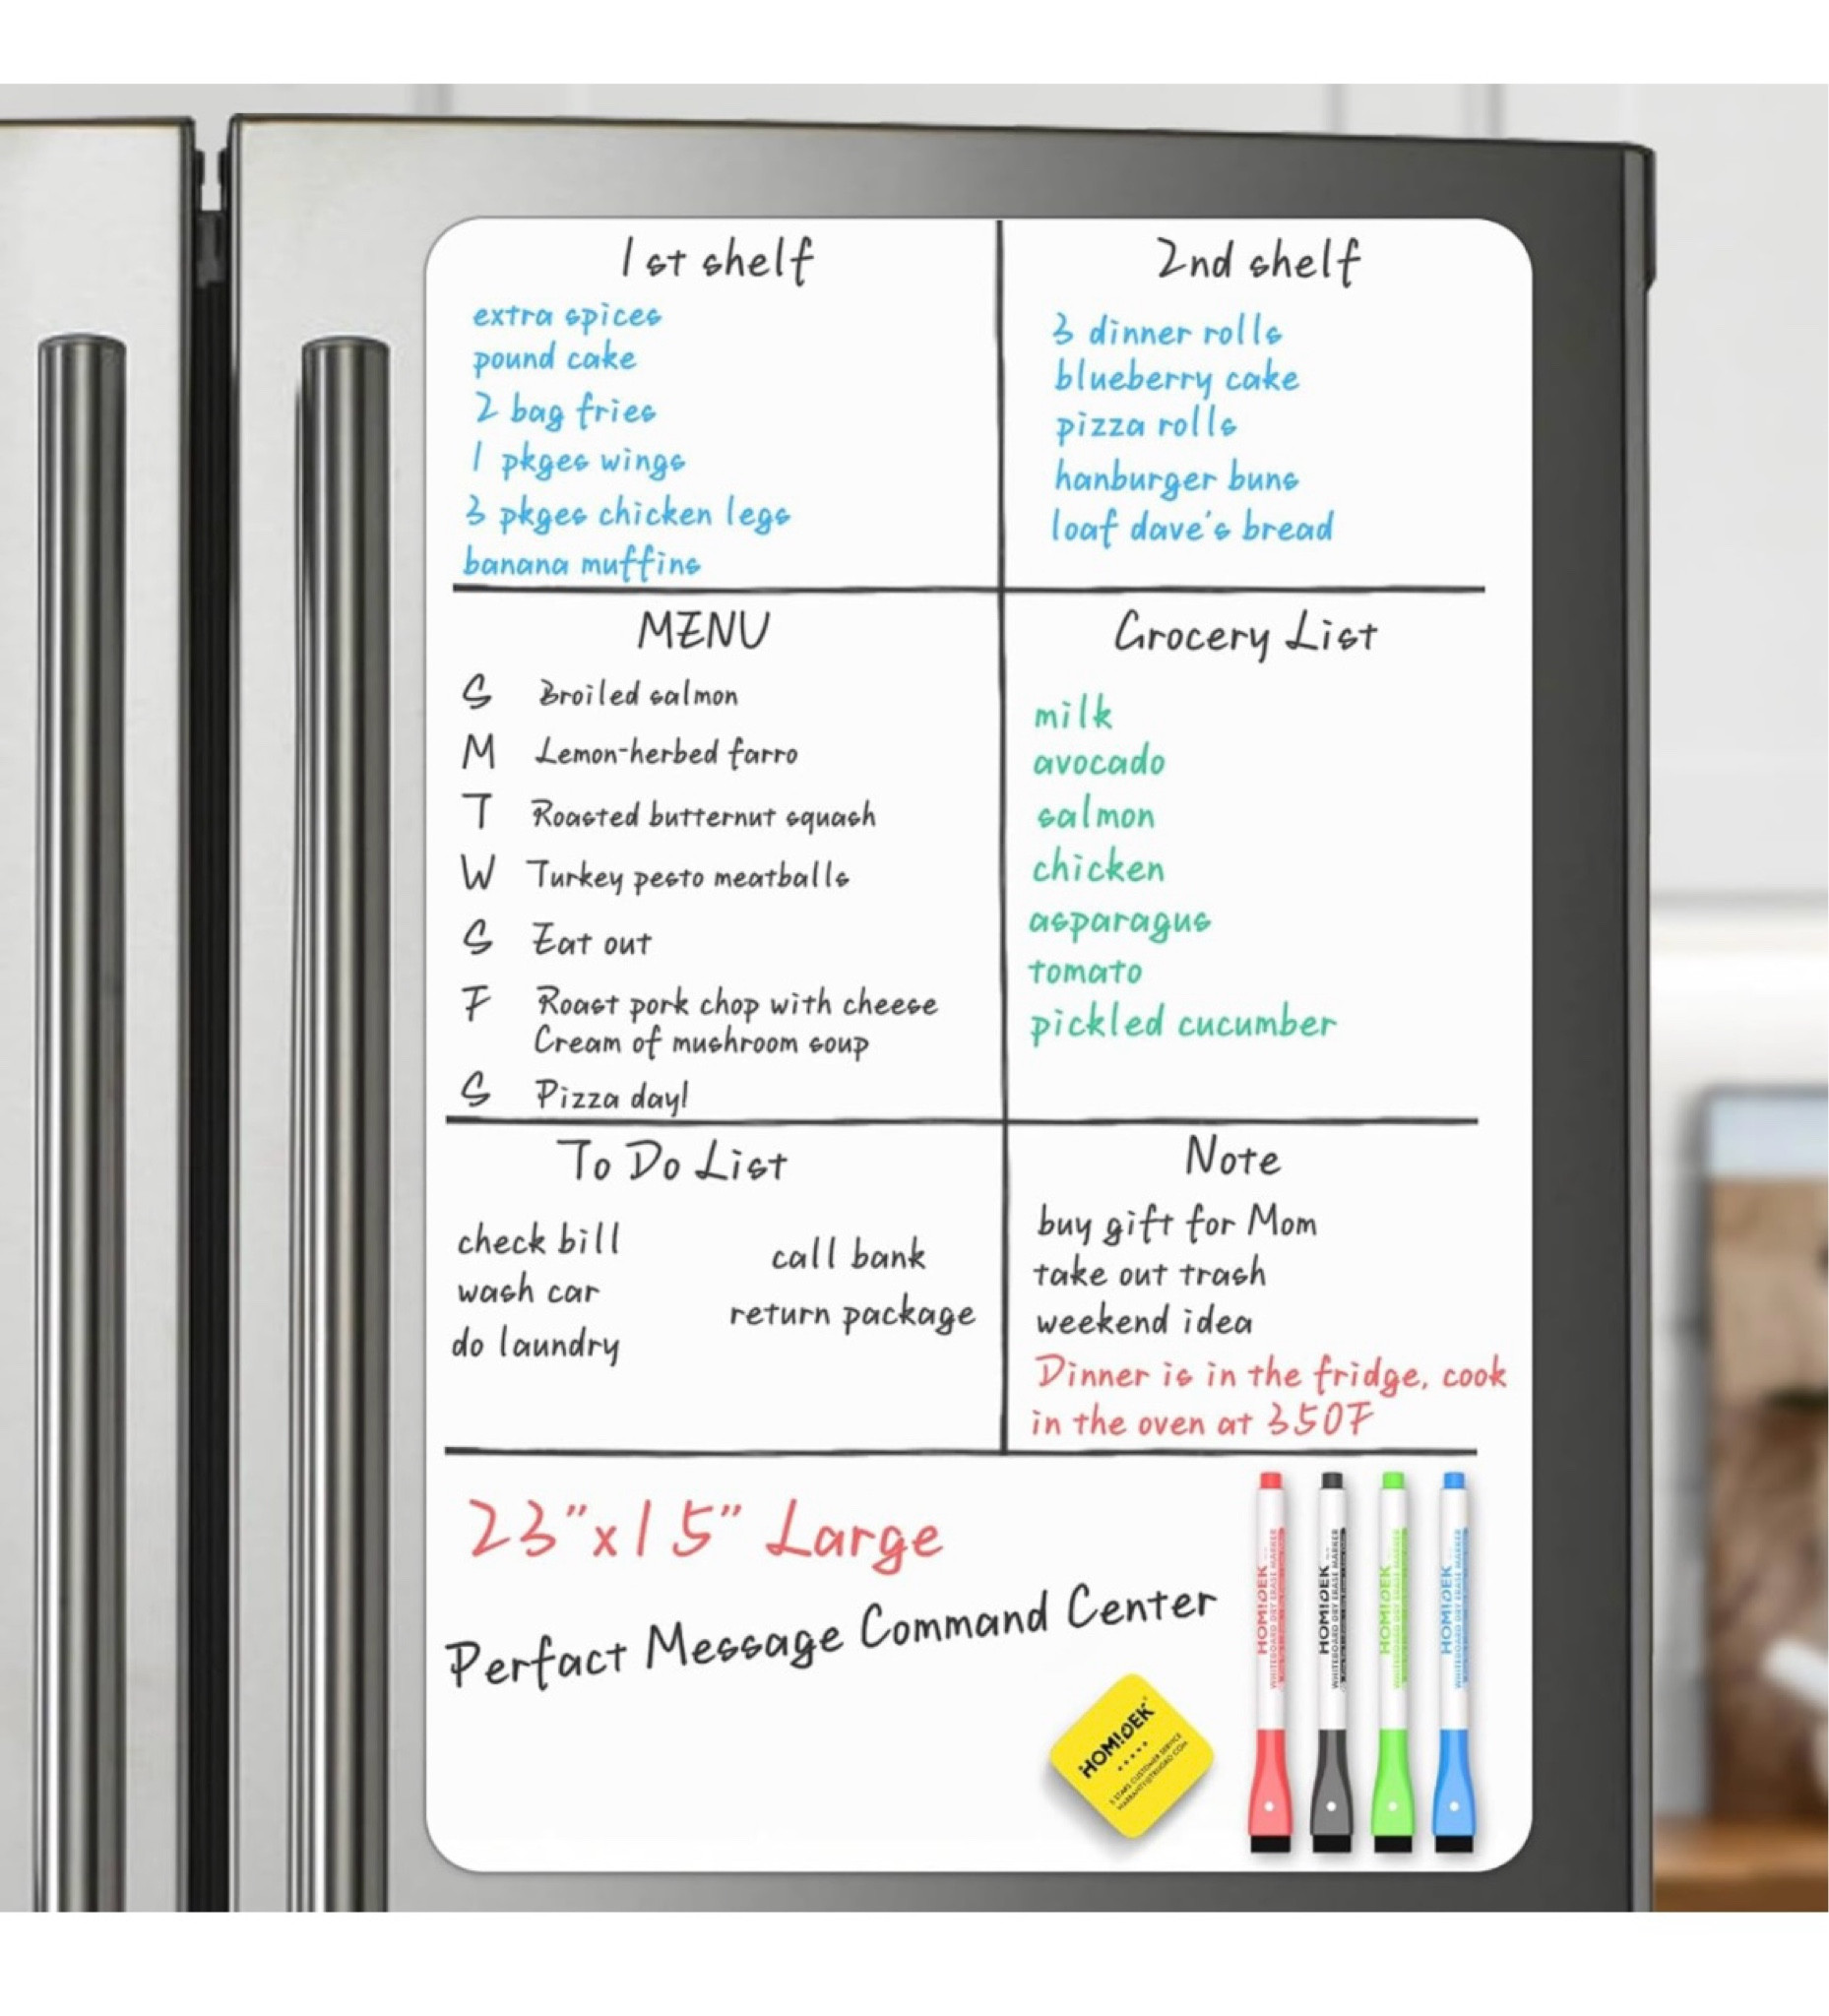 1st shelf
extra spices
pound cake
2 bag fries
1 pkges wings
3 pkges chicken legs
banana muffins
2nd shelf
3 dinner rolls
blueberry cake
pizza rolls
hanburger buns
loaf dave's bread
MENU
S Broiled salmon
M Lemon-herbed farro
T Roasted butternut squash
W Turkey pesto meatballs
S Eat out
F Roast pork chop with cheese
Cream of mushroom soup
S Pizza day!
Grocery List
milk
avocado
salmon
chicken
asparagus
tomato
pickled cucumber
To Do List
check bill
wash car
do laundry
call bank
return package
Note
buy gift for Mom
take out trash
weekend idea
Dinner is in the fridge, cook
in the oven at 350F
23"x15" Large
Perfact Message Command Center
HOM!DEK
5 STARS CUSTOMER SERVICE
HOM!DEK
WHITEBOARD DRY ERASE MARKER
HOM!DEK
WHITEBOARD DRY ERASE MARKER
HOM!DEK
WHITEBOARD DRY ERASE MARKER
HOM!DEK
WHITEBOARD DRY ERASE MARKER